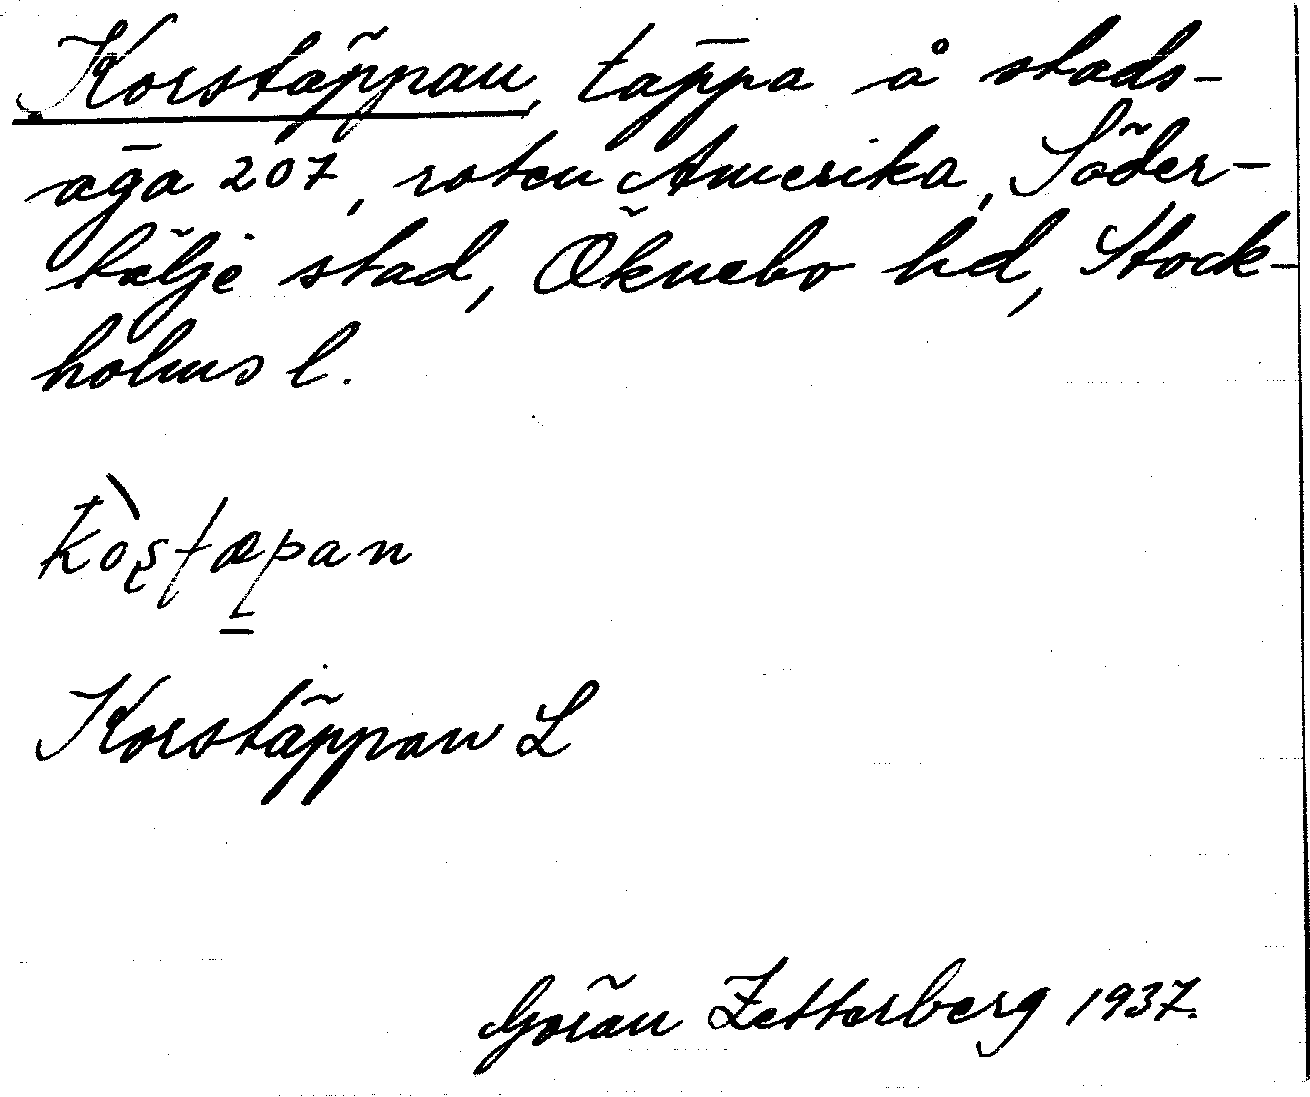 Korstäppan, täppa å stads-
äga 207, roten Amerika, Söder-
tälje stad, Öknebo hd, Stock-
holms l.
kòʂtæpan
Korstäppan L
Göran Zetterberg 1937.